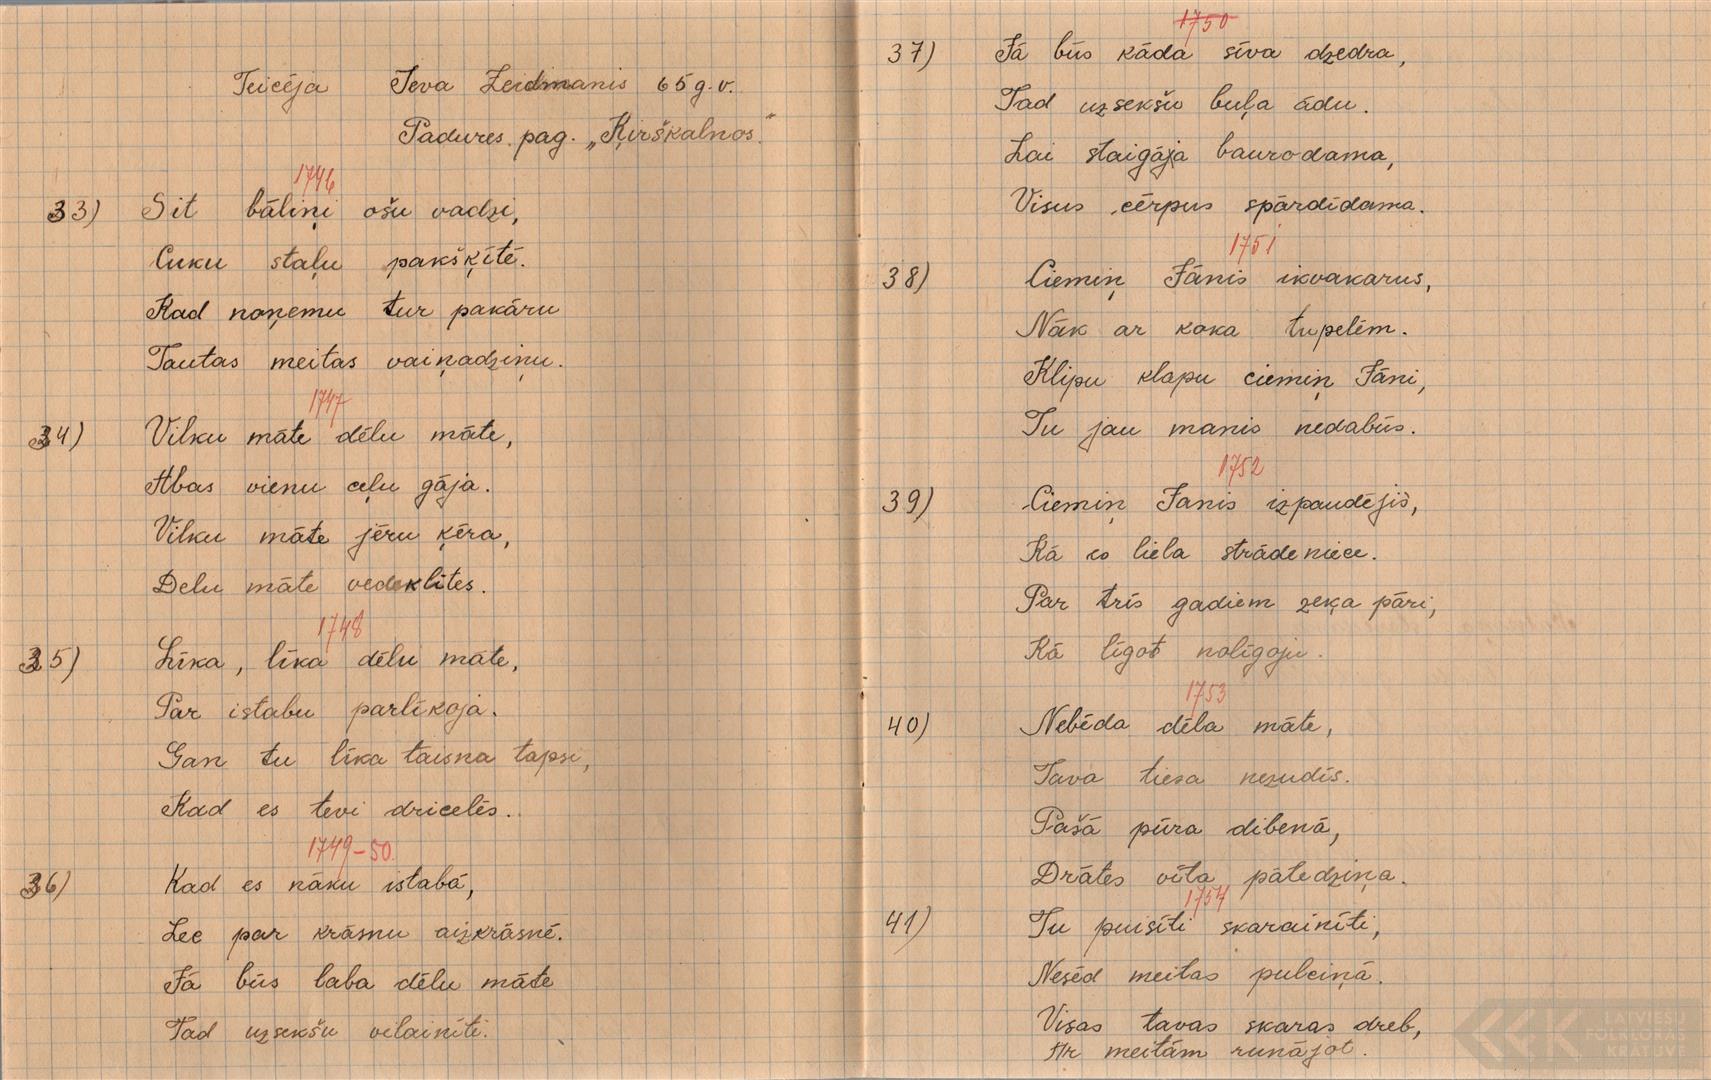 Teicēja Ieva Zeidmanis 65 g. v.
Padures pag. „Ķirškalnos.”
1746
33) Sit bāliņi ošu vadzi,
Cuku staļu pakšķītē.
Kad noņemu tur pakāru
Tautas meitas vaiņadziņu.
1747
34) Vilku māte dēlu māte,
Abas vienu ceļu gāja.
Vilku māte jēru ķēra,
Delu māte vedeklītes.
1748
35) Līka, līka dēlu māte,
Par istabu parlīkoja.
Gan tu līka taisna tapsi,
Kad es tevi dricelēs.
1749-50.
36) Kad es nāku istabā,
Lec par krāsnu aizkrāsnē.
Jā būs laba dēlu māte
Tad uzsekšu vilainīti.
1750
37) Jā būs kāda sīva dzedra,
Tad uzsekšu buļa ādu.
Lai staigāja baurodama,
Visus cērpus spārdīdama.
1751
38) Ciemiņ Jānis ikvakarus,
Nāk ar koka tupelēm.
Klipu klapu ciemiņ Jāni,
Tu jau manis nedabūs.
1752
39) Ciemiņ Janis izpaudējis,
Kā es liela strādeniece.
Par trīs gadiem zeķa pāri,
Kā līgot nolīgoju.
1753
40) Nebēda dēla māte,
Tava tiesa nezudīs.
Pašā pūra dibenā,
Drātes vīta pātedziņa.
1754
41) Tu puisīti skarainīti,
Nesēd meitas pulciņā.
Visas tavas skaras dreb,
Ar meitām runājot.
LATVIEŠU
FOLKLORAS
KRĀTUVE